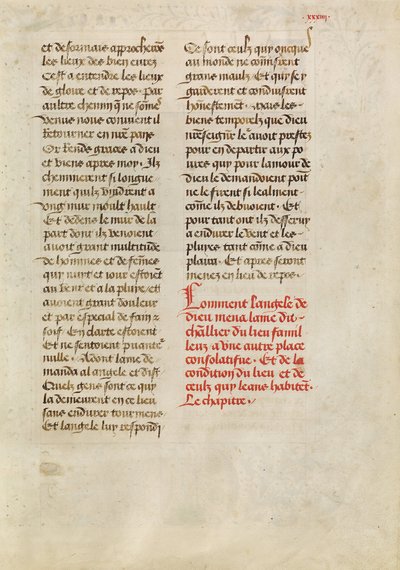 xxxiiij
et desormais approcherons
les lieux des bien eurez
Cest a entendre les lieux
de gloire et de repos. Par
aultre chemin que ne sommes
venue nous convient il
Retourner en nore pays
Or rends graces a dieu
et viens apres moy. Ilz
cheminerent si longue
ment quilz vindrent a
vng mur moult hault
Et dedens le mur de la
part dont ilz venoient
auoit grant multitude
de hommes et de femes
quy nuit et iour estoiet
au vent et a la pluye et
auoient grant douleur
et par especial de faim z
soif En clarte estoient
Et ne sentoient puantr
nulle. Adont lame de
manda al angele et dist
Quelz gens sont ce quy
la demeurent en ce lieu
sans endurer tourmens
Et langele luy respondi
Ce sont ceulz quy oncque
au monde ne comisrent
grans maulz Et quy se y
guiderent et conduisrent
honestement. Mais les
biens temporelz que dieu
nore seignr le auoit prestez
pour en departir aux po
ures quy pour lamour de
dieu le demandoient point
ne le firent si lealment
come ilz debuoient. Et
pour tant ont ilz desseruy
a endurer le vent et les
pluyes tant come a dieu
plaira. Et apres seront
menez en lieu de repos.
Comment langele de
dieu mena lame du
chllier du lieu famil
leux a vne autre place
consolatifue. Et de la
condition du lieu et de
ceulz quy leans habitet.
Le chapitre.